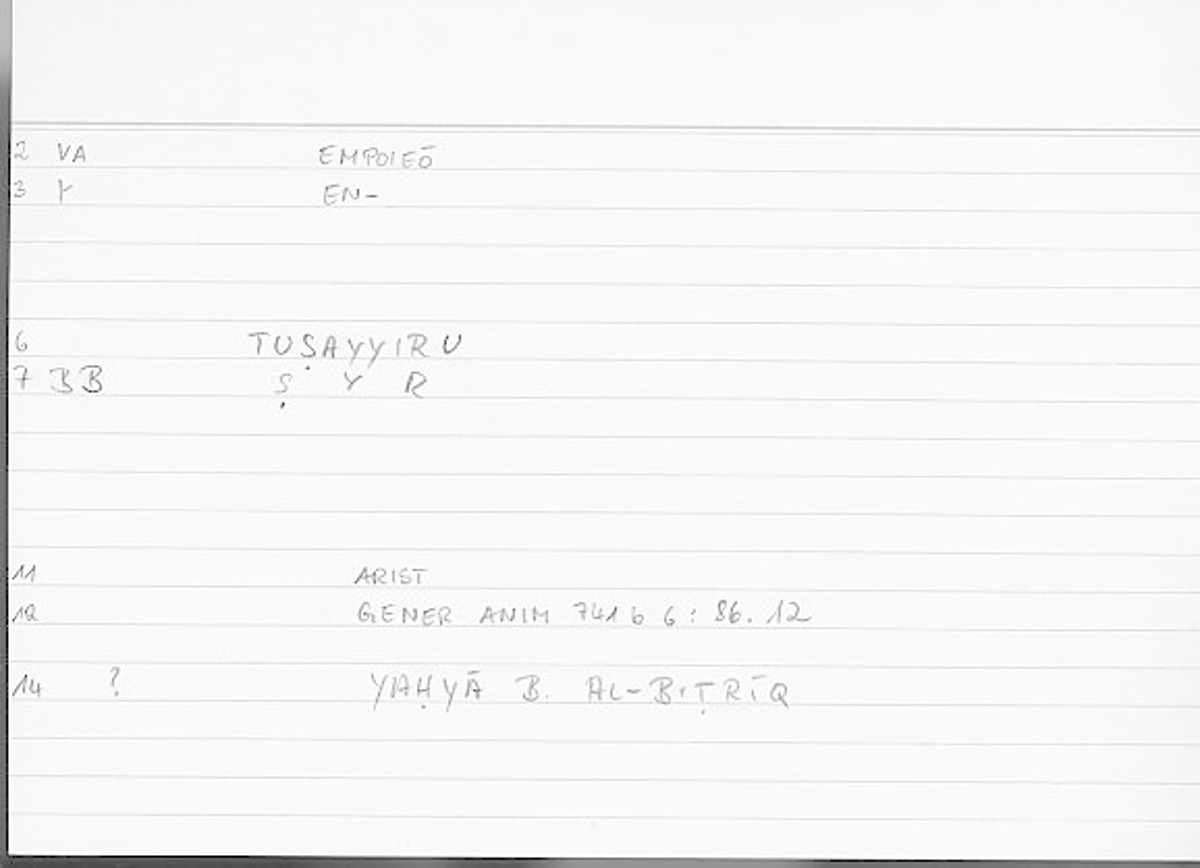 2 VA EMPOIEŌ
3 EN-
6 TUṢAYYIRU
7 BB Ṣ Y R
11 ARIST
12 GENER ANIM 741 b 6 : 86. 12
14 ? YAḤYĀ B. AL-BIṬRĪQ